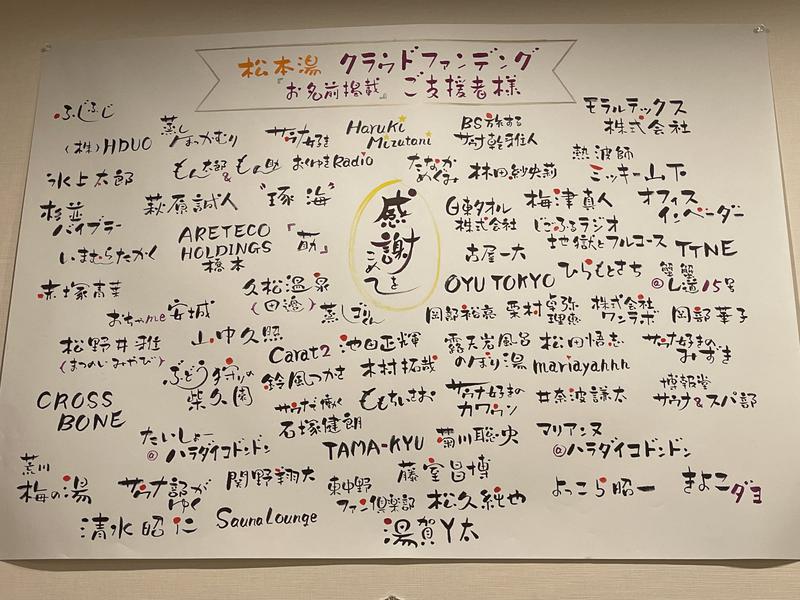 松本湯 クラウドファンディング
『お名前掲載』 ご支援者様
感謝をこめて
ふじふじ
蒸しほっかむり
サウナ好き
Haruki Mizutani
BS旅する
モラルテックス株式会社
(株)HDUO
もん太郎&もん助
おくゆきRadio
たなかめぐみ
林田紗央莉
熱波師
ミッキー山下
氷上太郎
杉並バイブラー
萩原誠人
"琢海"
日東タオル株式会社
梅津真人
オフィスインベーダー
いまむらたかく
ARETECO HOLDINGS 橋本
古屋一大
じごふるラジオ
地獄とフルコース
TTNE
赤塚
おちゃme安城
久松温泉(田邉)
OYU TOKYO
ひらもとさち
蟹蟹
15号
松野井雅(まつのいみやび)
山中久照
蒸しぷりん
岡部裕哀
栗村卓弥 理恵
株式会社ワンラボ
岡部華子
ぶどう狩りの柴久園
Carat2
池田正輝
露天岩風呂
のぼり湯
松田悟志
サウナ好きのみずき
CROSS BONE
鈴風つかさ
木村拓哉
mariyahhh
サウナで働く石塚健朗
ももちぃさお
サウナ好きのカワウソ
井奈波謙太
博報堂サウナ&スパ部
たいしょー@ハラダイコドンドン
TAMA-KYU
菊川聡央
マリアンヌ@ハラダイコドンドン
荒川梅の湯
サウナ部がゆく
関野翔大
東中野ファン倶楽部
藤室昌博
松久純也
よっこら昭一
きよこダヨ
清水昭仁
Sauna Lounge
湯賀Y太